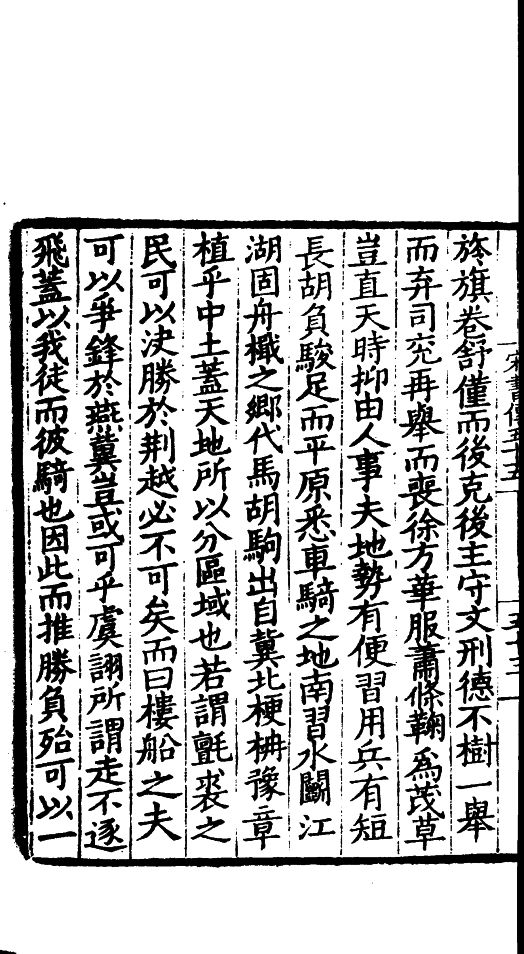 宋書傳五十五 五十三
旍旗卷舒僅而後克後主守文刑德不樹一舉
而弃司兖再舉而喪徐方華服蕭條鞠爲茂草
豈直天時抑由人事夫地勢有便習用兵有短
長胡負駿足而平原悉車騎之地南習水鬭江
湖固舟檝之鄉代馬胡駒出自冀北梗柟豫章
植乎中土蓋天地所以分區域也若謂氊裘之
民可以決勝於荆越必不可矣而曰樓船之夫
可以爭鋒於燕冀豈或可乎虞詡所謂走不逐
飛蓋以我徒而彼騎也因此而推勝負殆可以一